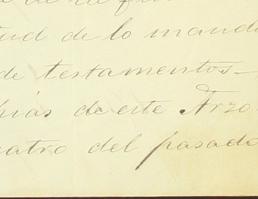 tud de lo manda
de testamentos
ias de este Arzo
atro del pasado